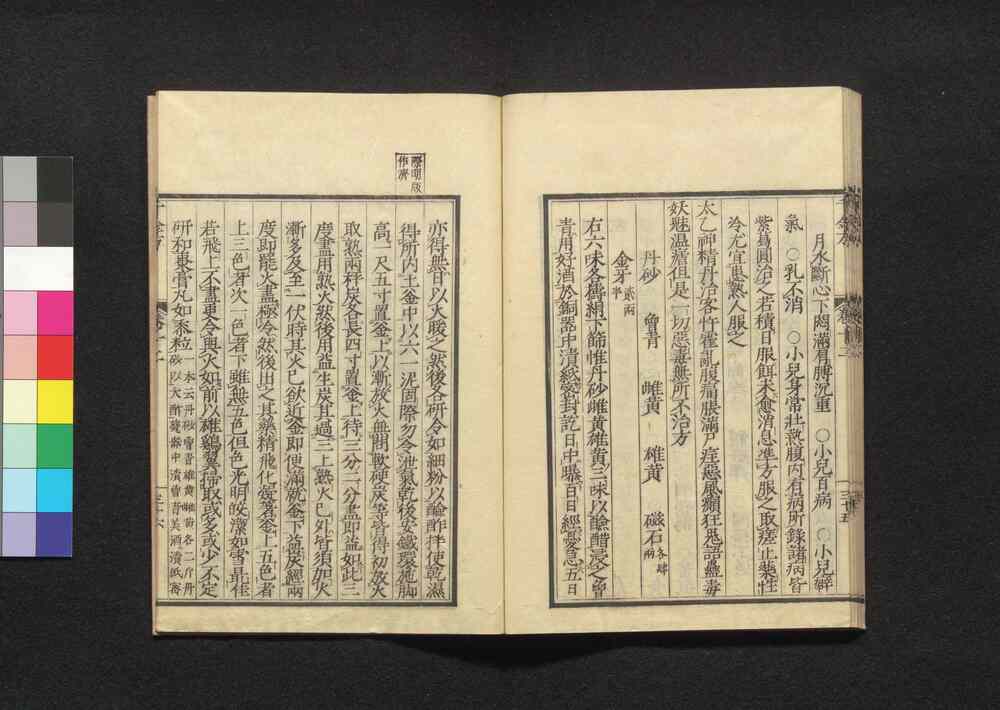 月水斷心下悶滿肩膊沉重 ○小兒百病 ○小兒癖
氣 ○乳不消 ○小兒身常壯熱腹內有病所錄諸病皆
紫葛圓治之若積日服餌未愈消息準方服之取瘥止藥性
冷尤宜患熱人服之
太乙神精丹治客忤霍亂腹痛脹滿尸疰惡風癲狂鬼語蠱毒
妖魅溫瘧但是一切惡毒無所不治方
丹砂 曾青 雌黃 雄黃 磁石各肆兩
金牙貳兩半
右六味各擣絹下篩惟丹砂雌黃雄黃三味以釅醋浸之曾
青用好酒於銅器中漬紙密封訖日中曝百日經夏急五日
亦得無日以火暖之然後各研令如細粉以釅酢拌使乾濕
得所內土釜中以六一泥固際勿令泄氣乾後安鐵環施脚
高一尺五寸置釜上以漸放火無問軟硬炭等皆得初放火
取熟兩秤炭各長四寸置釜上待三分二分盡即益如此三
度盡用熟火然後用益生炭其過三上熟火已外皆須加火
漸多及至一伏時其火已欲近釜即便滿就釜下益炭經兩
度即罷火盡極冷然後出之其藥精飛化凝著釜上五色者
上三色者次一色者下雖無五色但色光明皎潔如雪最佳
若飛上不盡更令與火如前以雄鷄翼掃取或多或少不定
研和棗膏丸如黍粒一本云丹砂曾青雄黃雌黃各二斤丹
砂以大酢酸醶中漬曾青美酒漬紙密
際明版
作濟